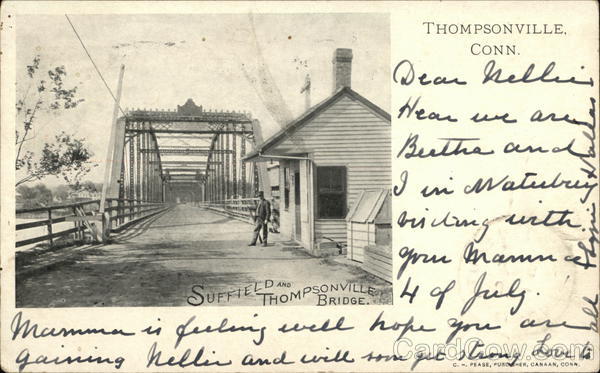 THOMPSONVILLE,
CONN.
Dear Nellie
Hear we are
Bertha and
I in Waterbury
visiting with
your Mamma
4 of July.
SUFFIELD AND
THOMPSONVILLE
BRIDGE.
Mamma is feeling well hope you are
gaining Nellie and will soon get strong Love to
all
CardCow.com
C. H. PEASE, PUBLISHER, CANAAN, CONN.